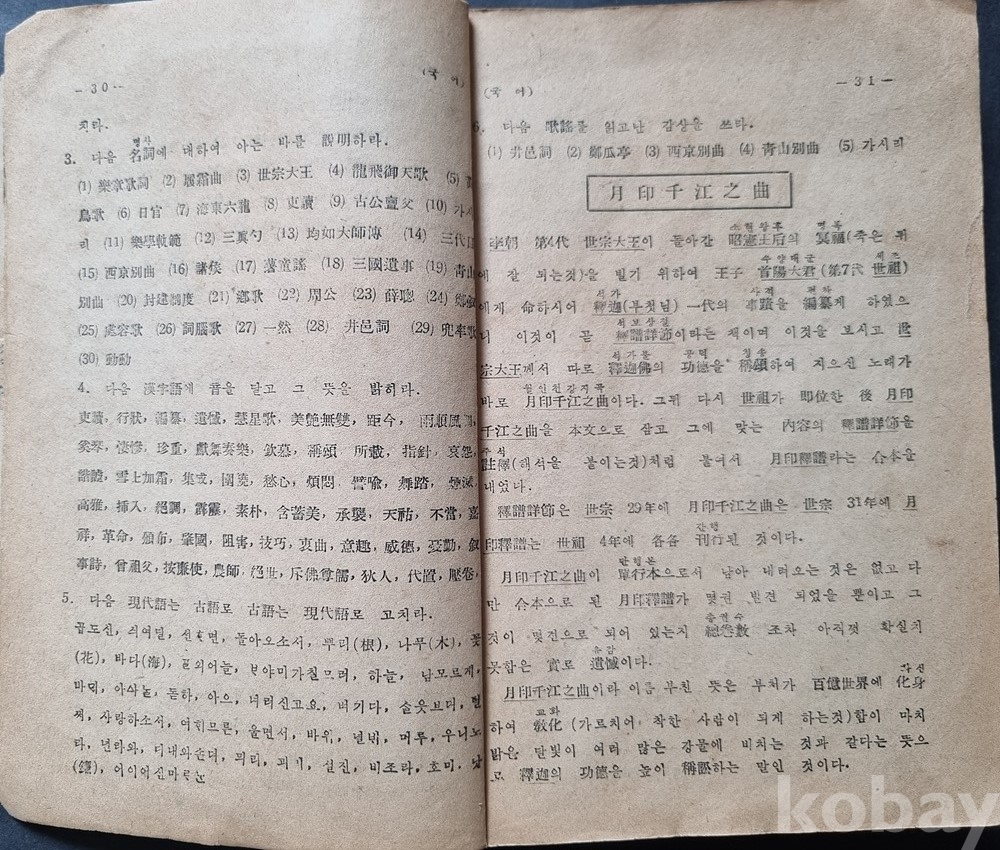 -30-
(국 어)
치라.
명사
3. 다음 名詞에 대하여 아는 바를 說明하라.
(1) 樂章歌詞 (2) 履霜曲 (3) 世宗大王 (4) 龍飛御天歌 (5)
鳥歌 (6) 日官 (7) 海東六龍 (8) 吏讀 (9) 古公亶父 (10) 가시
리 (11) 樂學軌範 (12) 三眞勺 (13) 均如大師傳 (14) 三代目
(15) 西京別曲 (16) 諸侯 (17) 薯童謠 (18) 三國遺事 (19) 靑山
別曲 (20) 封建制度 (21) 鄕歌 (22) 周公 (23) 薛聰 (24)
(25) 處容歌 (26) 詞腦歌 (27) 一然 (28) 井邑詞 (29) 兜率歌
(30) 動動
4. 다음 漢字語에 音을 달고 그 뜻을 밝히라.
吏讀, 行狀, 編纂, 遺憾, 彗星歌, 美艶無雙, 距今, 雨順風調,
奚琴, 悽慘, 珍重, 戱舞奏樂, 欽慕, 稱頌 所載, 指針, 哀怨,
諧謔, 雪上加霜, 集成, 圍繞, 愁心, 煩悶, 譬喩, 舞踏, 煙滅
高雅, 揷入, 絕調, 霹靂, 素朴, 含蓄美, 承襲, 天祐, 不當, 嘉
祥, 革命, 頒布, 肇國, 阻害, 技巧, 衷曲, 意趣, 威德, 憂勤, 叙
事詩, 曾祖父, 按廉使, 農師, 絕世, 斥佛尊儒, 狄人, 代置, 壓卷,
5. 다음 現代語는 古語로 古語는 現代語로 고치라.
곱도신, 싀여딜, 돌아오소서, 뿌리(根), 나무(木), 꽃
(花), 바다(海), 하늘, 남모르게,
아으, 녀러신고요, 벼기다,
사랑하소서, 여희므론, 울면서, 바위, 멀위, 우니노
라, 믜리, 괴리, 설진, 비조라, 호미, 낟
(鎌), 어이어신마ᄅᆞᄂᆞᆫ
(국 어)
-31-
6. 다음 歌謠를 읽고난 감상을 쓰라.
(1) 井邑詞 (2) 鄭瓜亭 (3) 西京別曲 (4) 靑山別曲 (5) 가시리
月印千江之曲
소헌왕후 명복
李朝 第4代 世宗大王이 돌아간 昭憲王后의 冥福(죽은 뒤
수양대군 세조
에 잘 되는것)을 빌기 위하여 王子 首陽大君(第7代 世祖)
석가 사적 편찬
에게 命하시어 釋迦(부첫님) 一代의 事蹟을 編纂게 하였으
석보상절
니 이것이 곧 釋譜詳節이라는 책이며 이것을 보시고 世
석가불 공덕 칭송
宗大王께서 따로 釋迦佛의 功德을 稱頌하여 지으신 노래가
월인천강지곡
바로 月印千江之曲이다. 그뒤 다시 世祖가 即位한 後 月印
千江之曲을 本文으로 삼고 그에 맞는 內容의 釋譜詳節을
주석
註釋(해석을 붙이는것)처럼 붙여서 月印釋譜라는 合本을
내었다.
釋譜詳節은 世宗 29年에 月印千江之曲은 世宗 31年에 月
간행
印釋譜는 世祖 4年에 各各 刊行된 것이다.
단행본
月印千江之曲이 單行本으로서 남아 내려오는 것은 없고 다
만 合本으로 된 月印釋譜가 몇권 발견 되었을 뿐이고 그
총권수
것이 몇권으로 되어 있는지 總卷數 조차 아직껏 확실치
유감
못함은 實로 遺憾이다.
화신
月印千江之曲이라 이름 부친 뜻은 부처가 百億世界에 化身
교화
하여 敎化(가르치어 착한 사람이 되게 하는것)함이 마치
맑은 달빛이 여러 많은 강물에 비치는 것과 같다는 뜻으
로 釋迦의 功德을 높이 稱訟하는 말인 것이다.
kobay